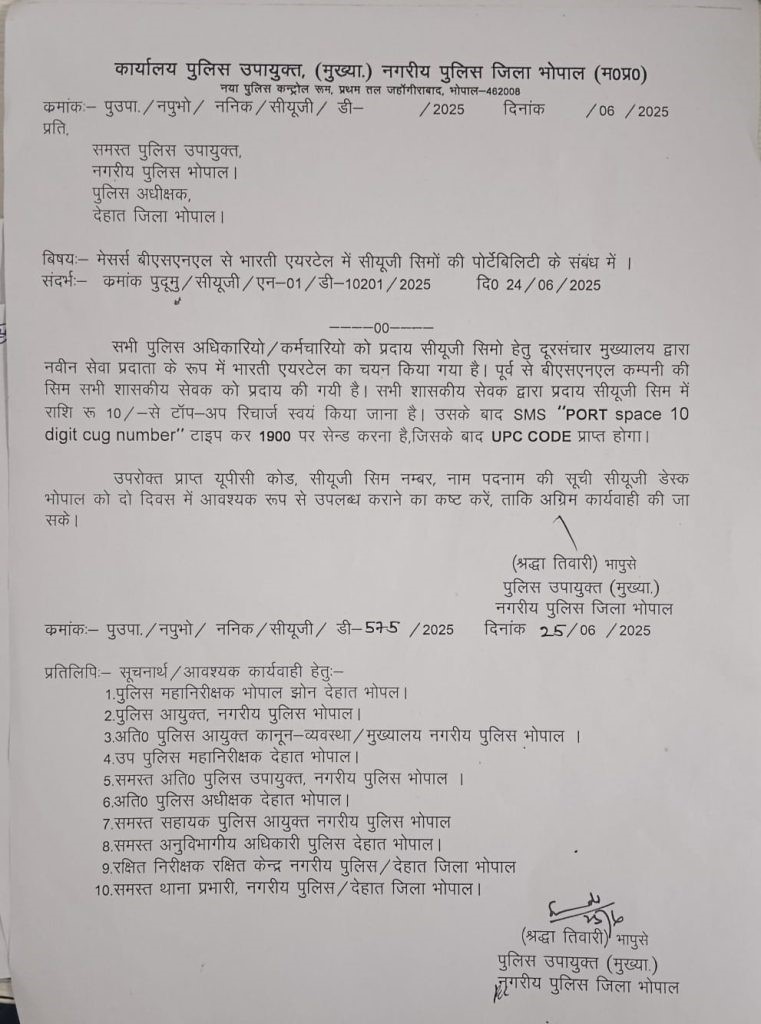 कार्यालय पुलिस उपायुक्त, (मुख्या.) नगरीय पुलिस जिला भोपाल (म0प्र0)
नया पुलिस कन्ट्रोल रूम, प्रथम तल जहॉगीराबाद, भोपाल–462008
कमांकः– पुउपा./नपुभो/ ननिक/सीयूजी/ डी– /2025 दिनांक /06 /2025
प्रति,
समस्त पुलिस उपायुक्त,
नगरीय पुलिस भोपाल।
पुलिस अधीक्षक,
देहात जिला भोपाल।
बिषयः– मेसर्स बीएसएनएल से भारती एयरटेल में सीयूजी सिमों की पोर्टेबिलिटी के संबंध में ।
संदर्भः– कमांक पुदूमु/सीयूजी/एन–01/डी–10201/2025 दि0 24/06/2025
––––00––––
सभी पुलिस अधिकारियो/कर्मचारियो को प्रदाय सीयूजी सिमो हेतु दूरसंचार मुख्यालय द्वारा
नवीन सेवा प्रदाता के रूप में भारती एयरटेल का चयन किया गया है। पूर्व से बीएसएनएल कम्पनी की
सिम सभी शासकीय सेवक को प्रदाय की गयी है। सभी शासकीय सेवक द्वारा प्रदाय सीयूजी सिम में
राशि रू 10/–से टॉप–अप रिचार्ज स्वयं किया जाना है। उसके बाद SMS “PORT space 10
digit cug number” टाइप कर 1900 पर सेन्ड करना है,जिसके बाद UPC CODE प्राप्त होगा।
उपरोक्त प्राप्त यूपीसी कोड, सीयूजी सिम नम्बर, नाम पदनाम की सूची सीयूजी डेस्क
भोपाल को दो दिवस में आवश्यक रूप से उपलब्ध कराने का कष्ट करें, ताकि अग्रिम कार्यवाही की जा
सके।
(श्रद्धा तिवारी) भापुसे
पुलिस उपायुक्त (मुख्या.)
नगरीय पुलिस जिला भोपाल
कमांकः– पुउपा./नपुभो/ ननिक/सीयूजी/ डी–575 /2025 दिनांक 25/06 /2025
प्रतिलिपिः– सूचनार्थ/आवश्यक कार्यवाही हेतुः–
1.पुलिस महानिरीक्षक भोपाल झोन देहात भोपल।
2.पुलिस आयुक्त, नगरीय पुलिस भोपाल।
3.अति0 पुलिस आयुक्त कानून–व्यवस्था/मुख्यालय नगरीय पुलिस भोपाल ।
4.उप पुलिस महानिरीक्षक देहात भोपाल।
5.समस्त अति0 पुलिस उपायुक्त, नगरीय पुलिस भोपाल ।
6.अति0 पुलिस अधीक्षक देहात भोपाल।
7.समस्त सहायक पुलिस आयुक्त नगरीय पुलिस भोपाल
8.समस्त अनुविभागीय अधिकारी पुलिस देहात भोपाल।
9.रक्षित निरीक्षक रक्षित केन्द्र नगरीय पुलिस/देहात जिला भोपाल
10.समस्त थाना प्रभारी, नगरीय पुलिस/देहात जिला भोपाल।
25/6
(श्रद्धा तिवारी) भापुसे
पुलिस उपायुक्त (मुख्या.)
नगरीय पुलिस जिला भोपाल